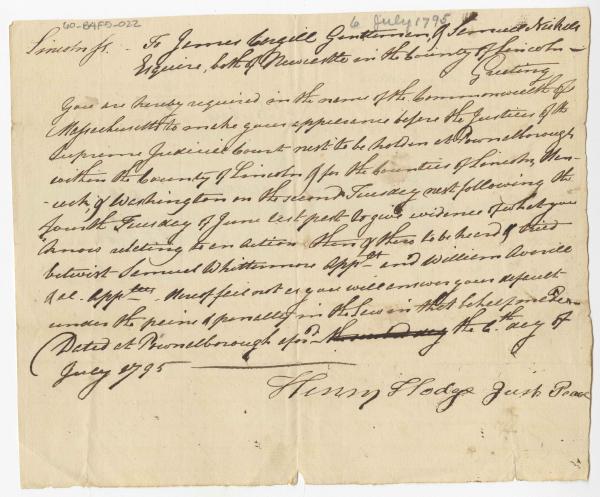 60-B4F5-022
6 July 1795
Lincoln ss. To James Cargill Gentleman, & Samuel Nichols
Esquire, both of Newcastle in the County of Lincoln —
Greeting
You are hereby required in the name of the Commonwealth of
Massachusetts to make your appearance before the Justices of the
Supreme Judicial Court next to be holden at Pownalborough
within the County of Lincoln & for the Counties of Lincoln, Han-
-cock, & Washington on the second Tuesday next following the
fourth Tuesday of June last past to give evidence of what you
know relating to an action then & there to be heard & tried
betwixt Samuel Whittemore Applt and William Averill
& al. Appees. Hereof fail not as you will answer your default
under the pains & penalty in the Law in that behalf made &
Dated at Pownalborough aforsd the second day the 6th day of
July 1795
Henry Hodge Just Peace